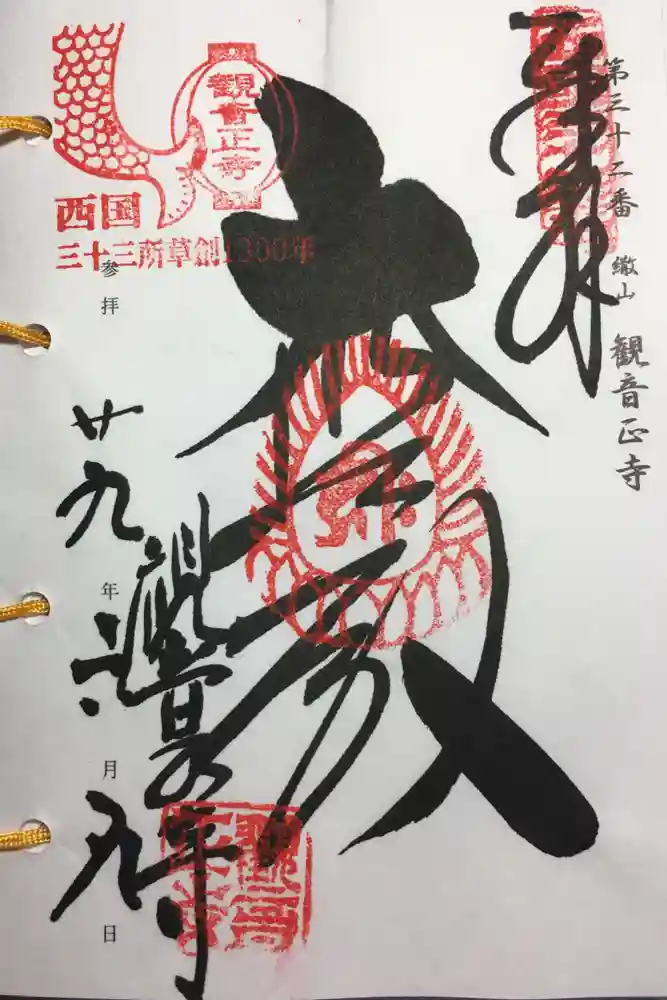 奉拝
第三十二番 繖山 観音正寺
大悲殿
観音正寺
西国
三十三所草創1300年
観音正寺
参拝
廿九年
月
九日